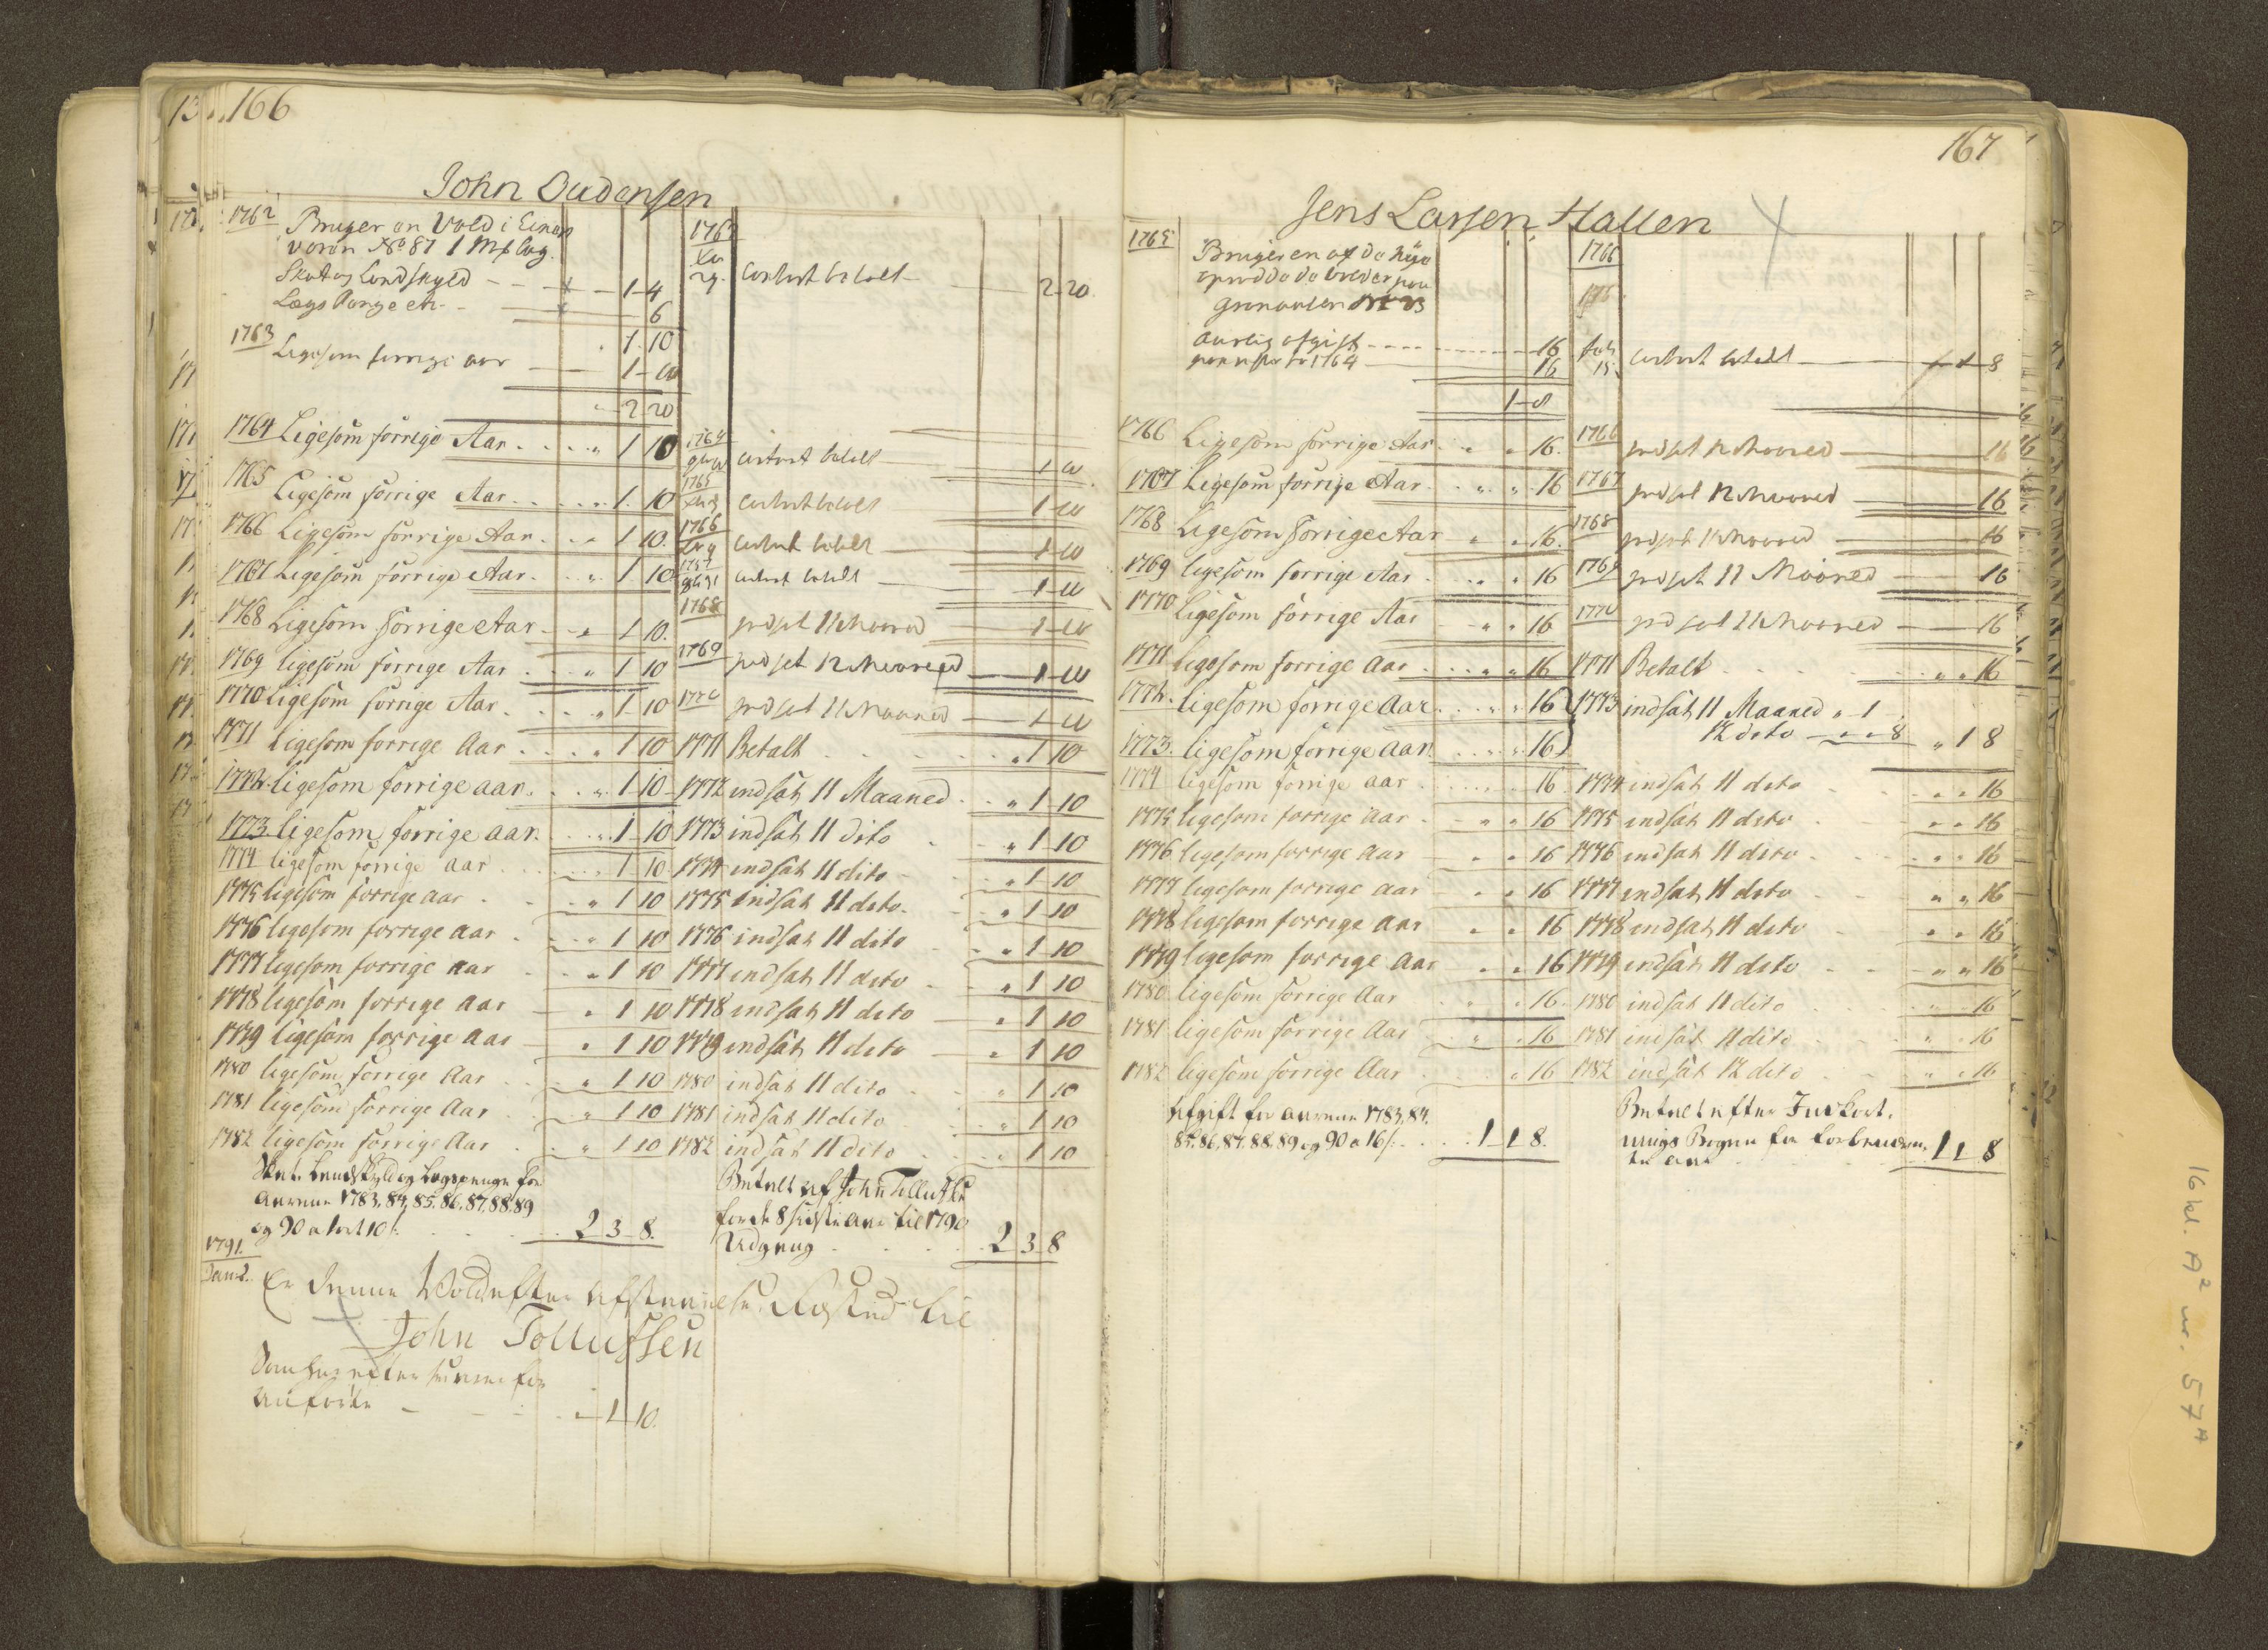 166
John Oudensen
1762 Bruger en Vold i Einars
voren No 87 1 Mß Læg.
Skat og Landskyld - - 1 - 4
Lægs Penge etr. - 6
1 10
1763 Ligesom forrige aar - 1 - 10
2 20
1764 Ligesom forrige Aar . . . " 1 10
1765 Ligesom forrige Aar . . . 1. 10
1766 Ligesom forrige Aar . . " 1 10.
1767 Ligesom forrige Aar . . " 1 10
1768 Ligesom forrige Aar " 1 10.
1769 ligesom forrige Aar . . " 1 10
1770 ligesom forrige Aar . . " 1 10
1771 ligesom forrige Aar . . " 1 10
1772. ligesom forrige aar. . . " 1 10
1773. ligesom forrige aar. . . " 1 10
1774 ligesom forrige aar . . 1 10
1775 ligesom forrige aar . . " 1 10
1776 ligesom forrige aar . . " 1 10
1777 ligesom forrige aar . " 1 10
1778 ligesom forrige aar " 1 10
1779 ligesom forrige aar " 1 10
1780 ligesom forrige Aar . . " 1 10
1781 ligesom forrige Aar . . " 1 10
1782 ligesom forrige Aar . . " 1 10
Skat. Landskyld og Lægspenge for
Aarene 1783, 84, 85, 86, 87, 88, 89
og 90 a 1 ort 10 ß. . . 2 3 8.
1791.
Er denne Vold efter Afstaaelse tilsted til
John Tollussen
1 10.
1763
29. contant betalt 2 - 20.
1764 contant betalt 1 10
1765 contant betalt 1 - 10
1766 contant betalt 1 - 10
1767 contant betalt 1 - 10
1768 indset 11 Maaned 1 - 10
1769 indset 12 Maaned 1 - 10
1770 indset 11 Maaned 1 - 10
1771 Betalt . . . " 1 10
1772 indsat 11 Maaned . . " 1 10
1773 indsat 11 dito . " 1 10
1774 indsat 11 dito . . " 1 10
1775 indsat 11 dito. . " 1 10
1776 indsat 11 dito . . " 1 10
1777 indsat 11 dito . " 1 10
1778 indsat 11 dito " 1 10
1779 indsat 11 dito " 1 10
1780 indsat 11 dito . . " 1 10
1781 indsat 11 dito . . " 1 10
1782 indsat 11 dito . . " 1 10
Betalt af John Tollussen
for de 8 sidste Aar til 1790
Udgang . . . 2 3 8
167
Jens Larsen Hallen
1765 Bruger en af de nye
opredde Volder paa
Grønøren
Aarlig afgift - - - - 16
1764 16
1 - 8
1766 Ligesom forrige Aar . " " 16.
1767 Ligesom forrige Aar . . " " 16
1768 Ligesom forrige Aar " " 16.
1769 ligesom forrige Aar . " " 16
1770 Ligesom forrige Aar " " 16
1771 ligesom forrige Aar . . " " 16
1772. ligesom forrige Aar . . " " 16
1773. ligesom forrige Aar. . . " " 16
1774 ligesom forrige aar . . . 16
1775 ligesom forrige Aar . " " 16
1776 ligesom forrige Aar " " 16
1777 ligesom forrige Aar " " 16
1778 ligesom forrige Aar " " 16
1779 ligesom forrige Aar " " 16
1780 ligesom forrige Aar . " " 16.
1781 ligesom forrige Aar " " 16
1782 ligesom forrige Aar . " " 16
Afgift for Aarene 1783, 84,
85, 86, 87, 88, 89 og 90 a 16 ß. . . . 1 1 8.
1766
15 contant betalt 1 8
1766 indset 12 Maaned 16
1767 indset 12 Maaned 16
1768 indset 11 Maaned 16
1769 indset 11 Maaned 16
1770 indset 11 Maaned 16
1771 Betalt . . . " " 16
1773 indsat 11 Maaned " 1
12 dito " " 8 " 1 8
1774 indsat 11 dito " " 16
1775 indsat 11 dito . " " 16
1776 indsat 11 dito . . " " 16
1777 indsat 11 dito . " " 16
1778 indsat 11 dito . " " 16
1779 indsat 11 dito . " " 16
1780 indsat 11 dito . . " " 16
1781 indsat 11 dito . . " " 16
1782 indsat 12 dito . . " " 16
Betalt efter Indkort-
nings Bogen for forbenævn-
te Aar 1 1 8
16 kl. A² nr. 57A